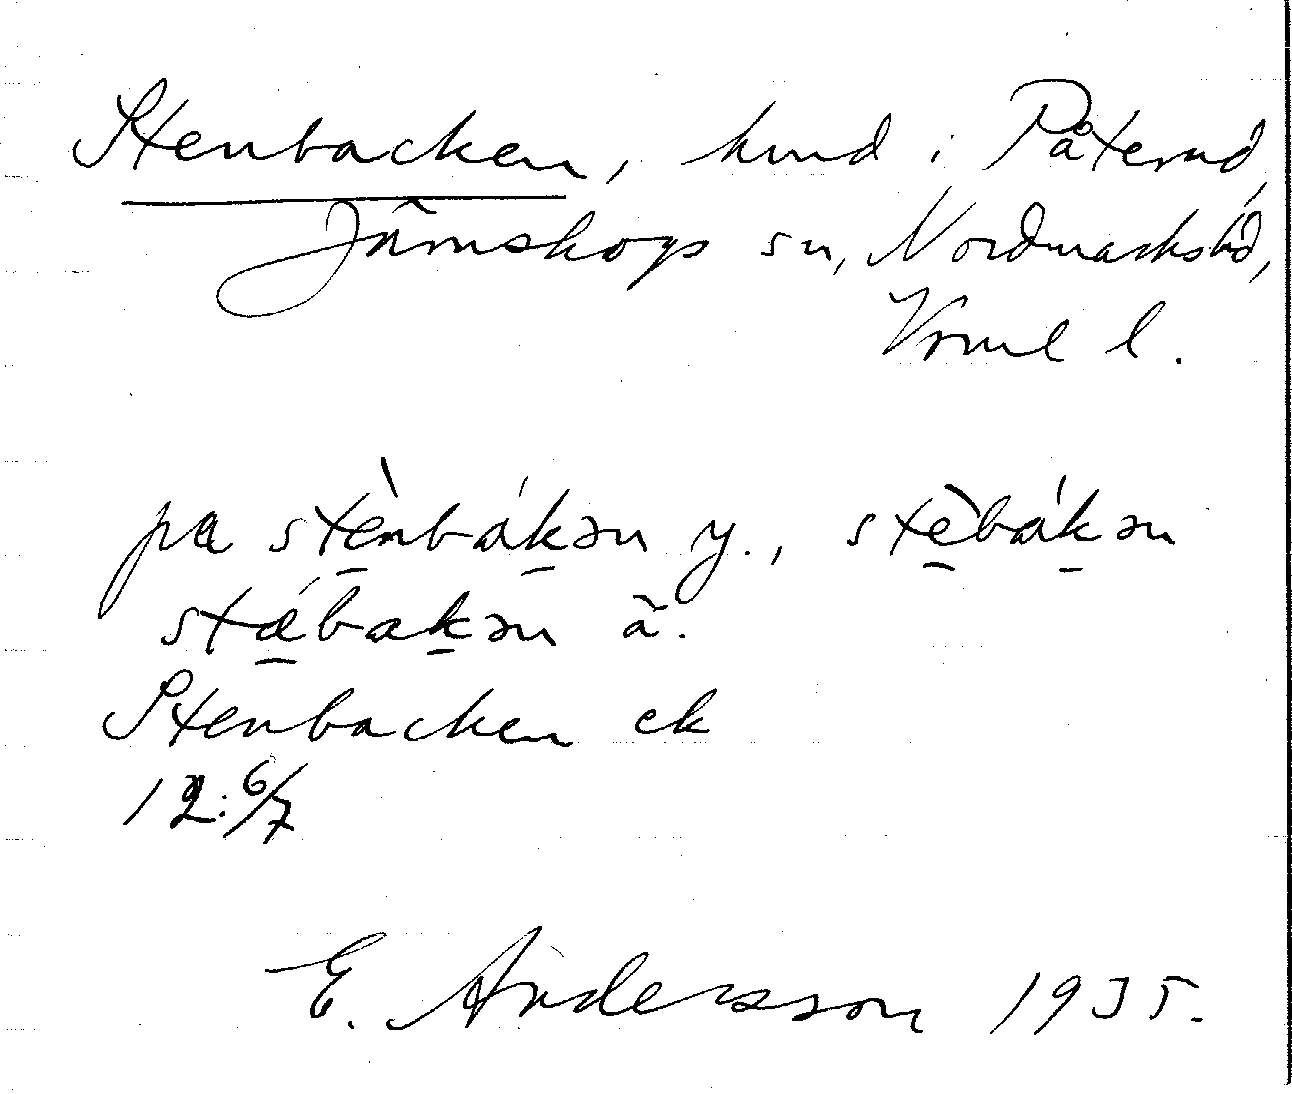 Stenbacken, hmd i Påterud,
Järnskogs sn, Nordmarks hd,
Vrml l.
pa stènbákən y., stèbákən
stǽbakən ä.
Stenbacken ek
12:6/7
E. Andersson 1935.